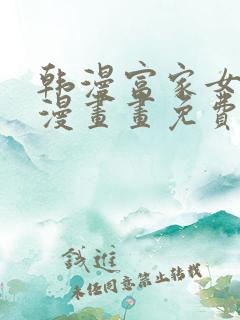 韩漫富家女
漫畫畫免費
钱進
未任同意禁止转载